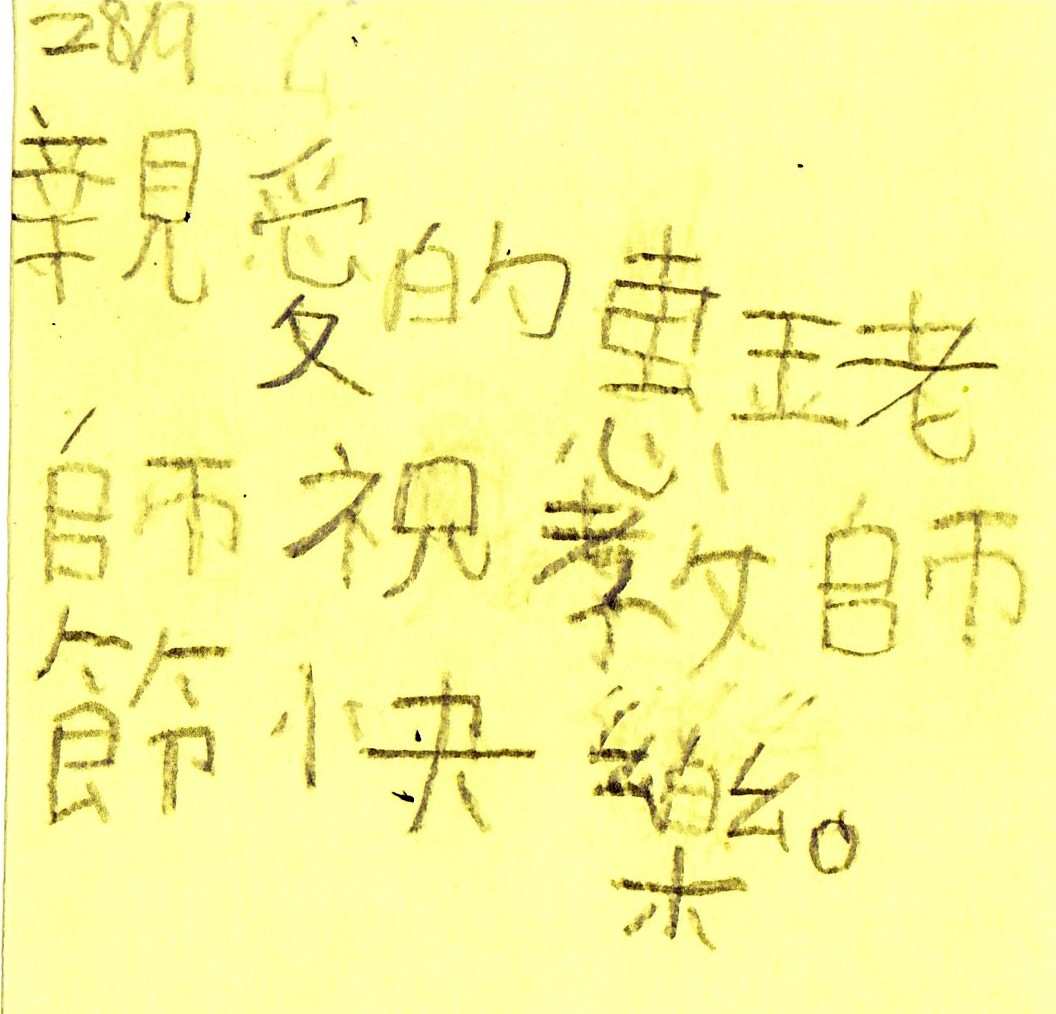 28/9
親愛的惠玉老
師祝教師
節快樂。